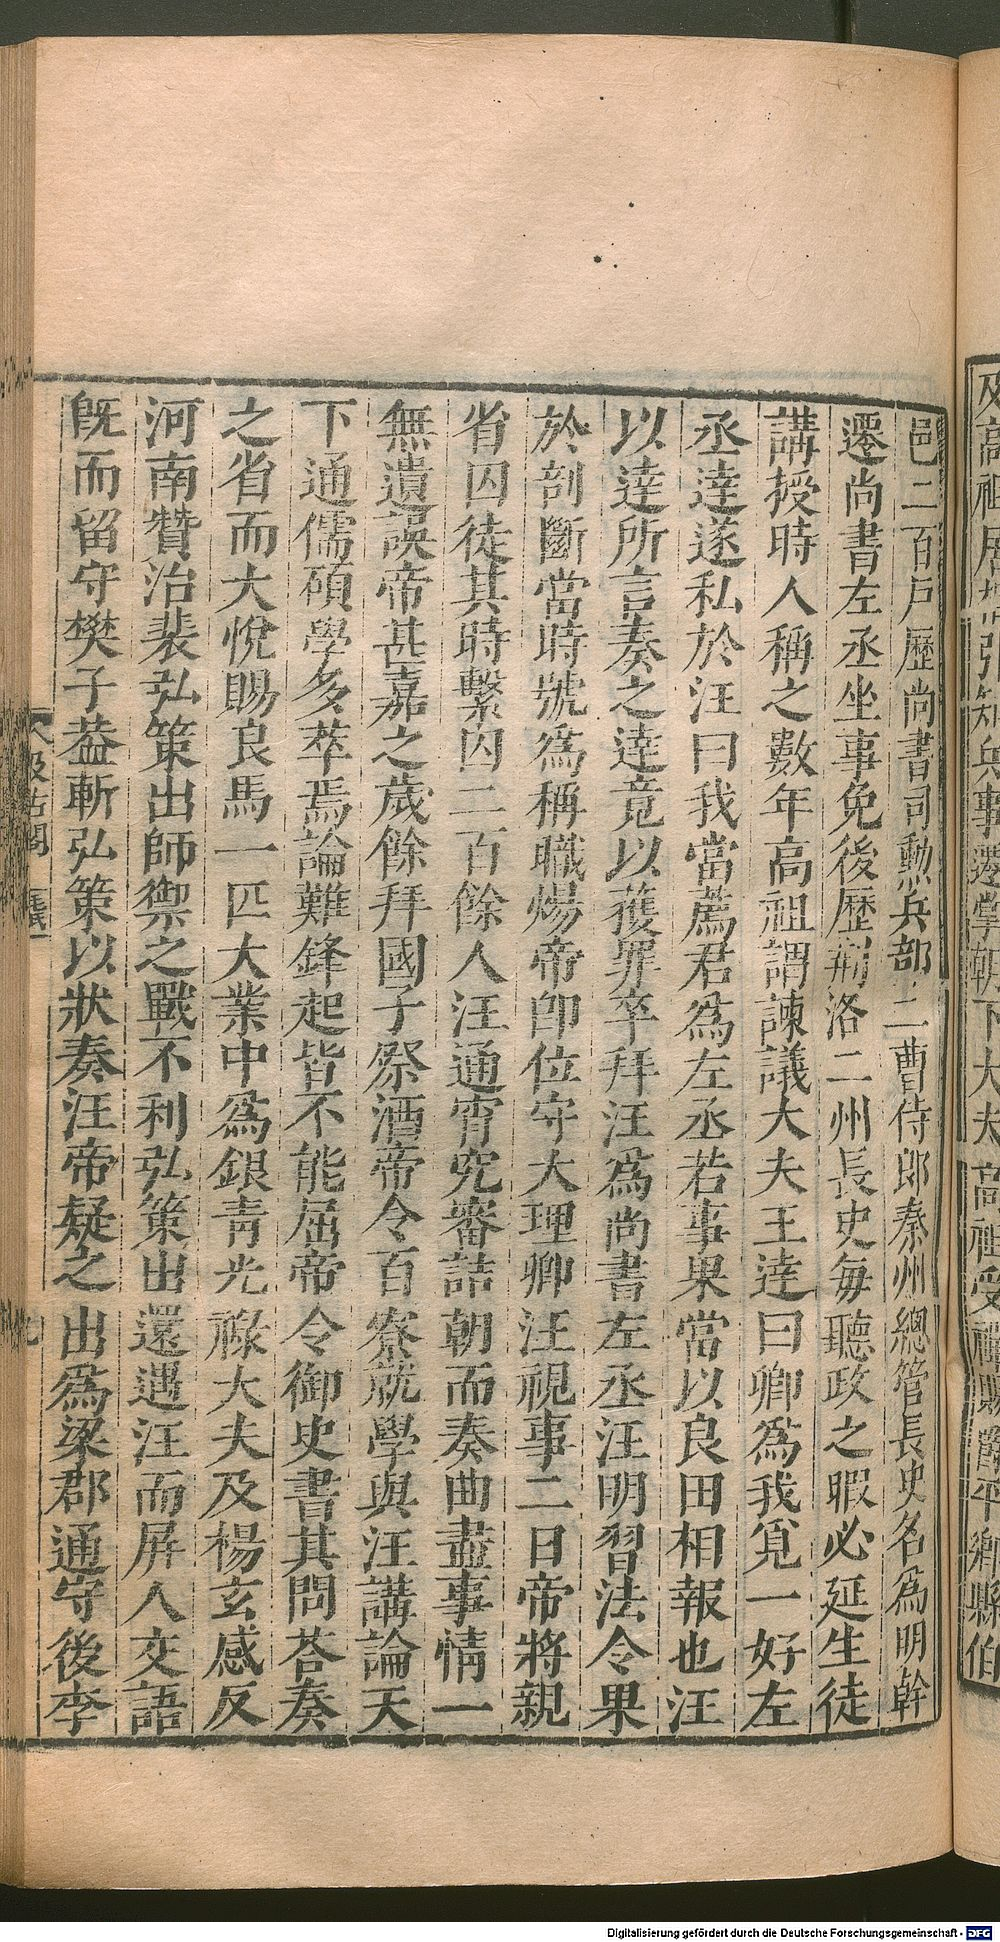 及高祖居相引知兵事遷掌朝下大夫高祖受禪賜爵平鄉縣伯
邑二百戶歷尚書司勲兵部二曹侍郎秦州總管長史名爲明幹
遷尚書左丞坐事免後歷荊洛二州長史每聽政之暇必延生徒
講授時人稱之數年高祖謂諫議大夫王達曰卿爲我覓一好左
丞達遂私於汪曰我當薦君爲左丞若事果當以良田相報也汪
以達所言奏之達竟以獲罪卒拜汪爲尚書左丞汪明習法令果
於剖斷當時號爲稱職煬帝卽位守大理卿汪視事二日帝將親
省囚徒其時繫囚二百餘人汪通宵究審詰朝而奏曲盡事情一
無遺誤帝甚嘉之歲餘拜國子祭酒帝令百寮就學與汪講論天
下通儒碩學多萃焉論難鋒起皆不能屈帝令御史書其問荅奏
之省而大悅賜良馬一匹大業中爲銀青光祿大夫及楊玄感反
河南贊治裴弘策出師禦之戰不利弘策出還遇汪而屏人交語
旣而留守樊子葢斬弘策以狀奏汪帝疑之出爲梁郡通守後李
汲古閣
Digitalisierung gefördert durch die Deutsche Forschungsgemeinschaft - DFG